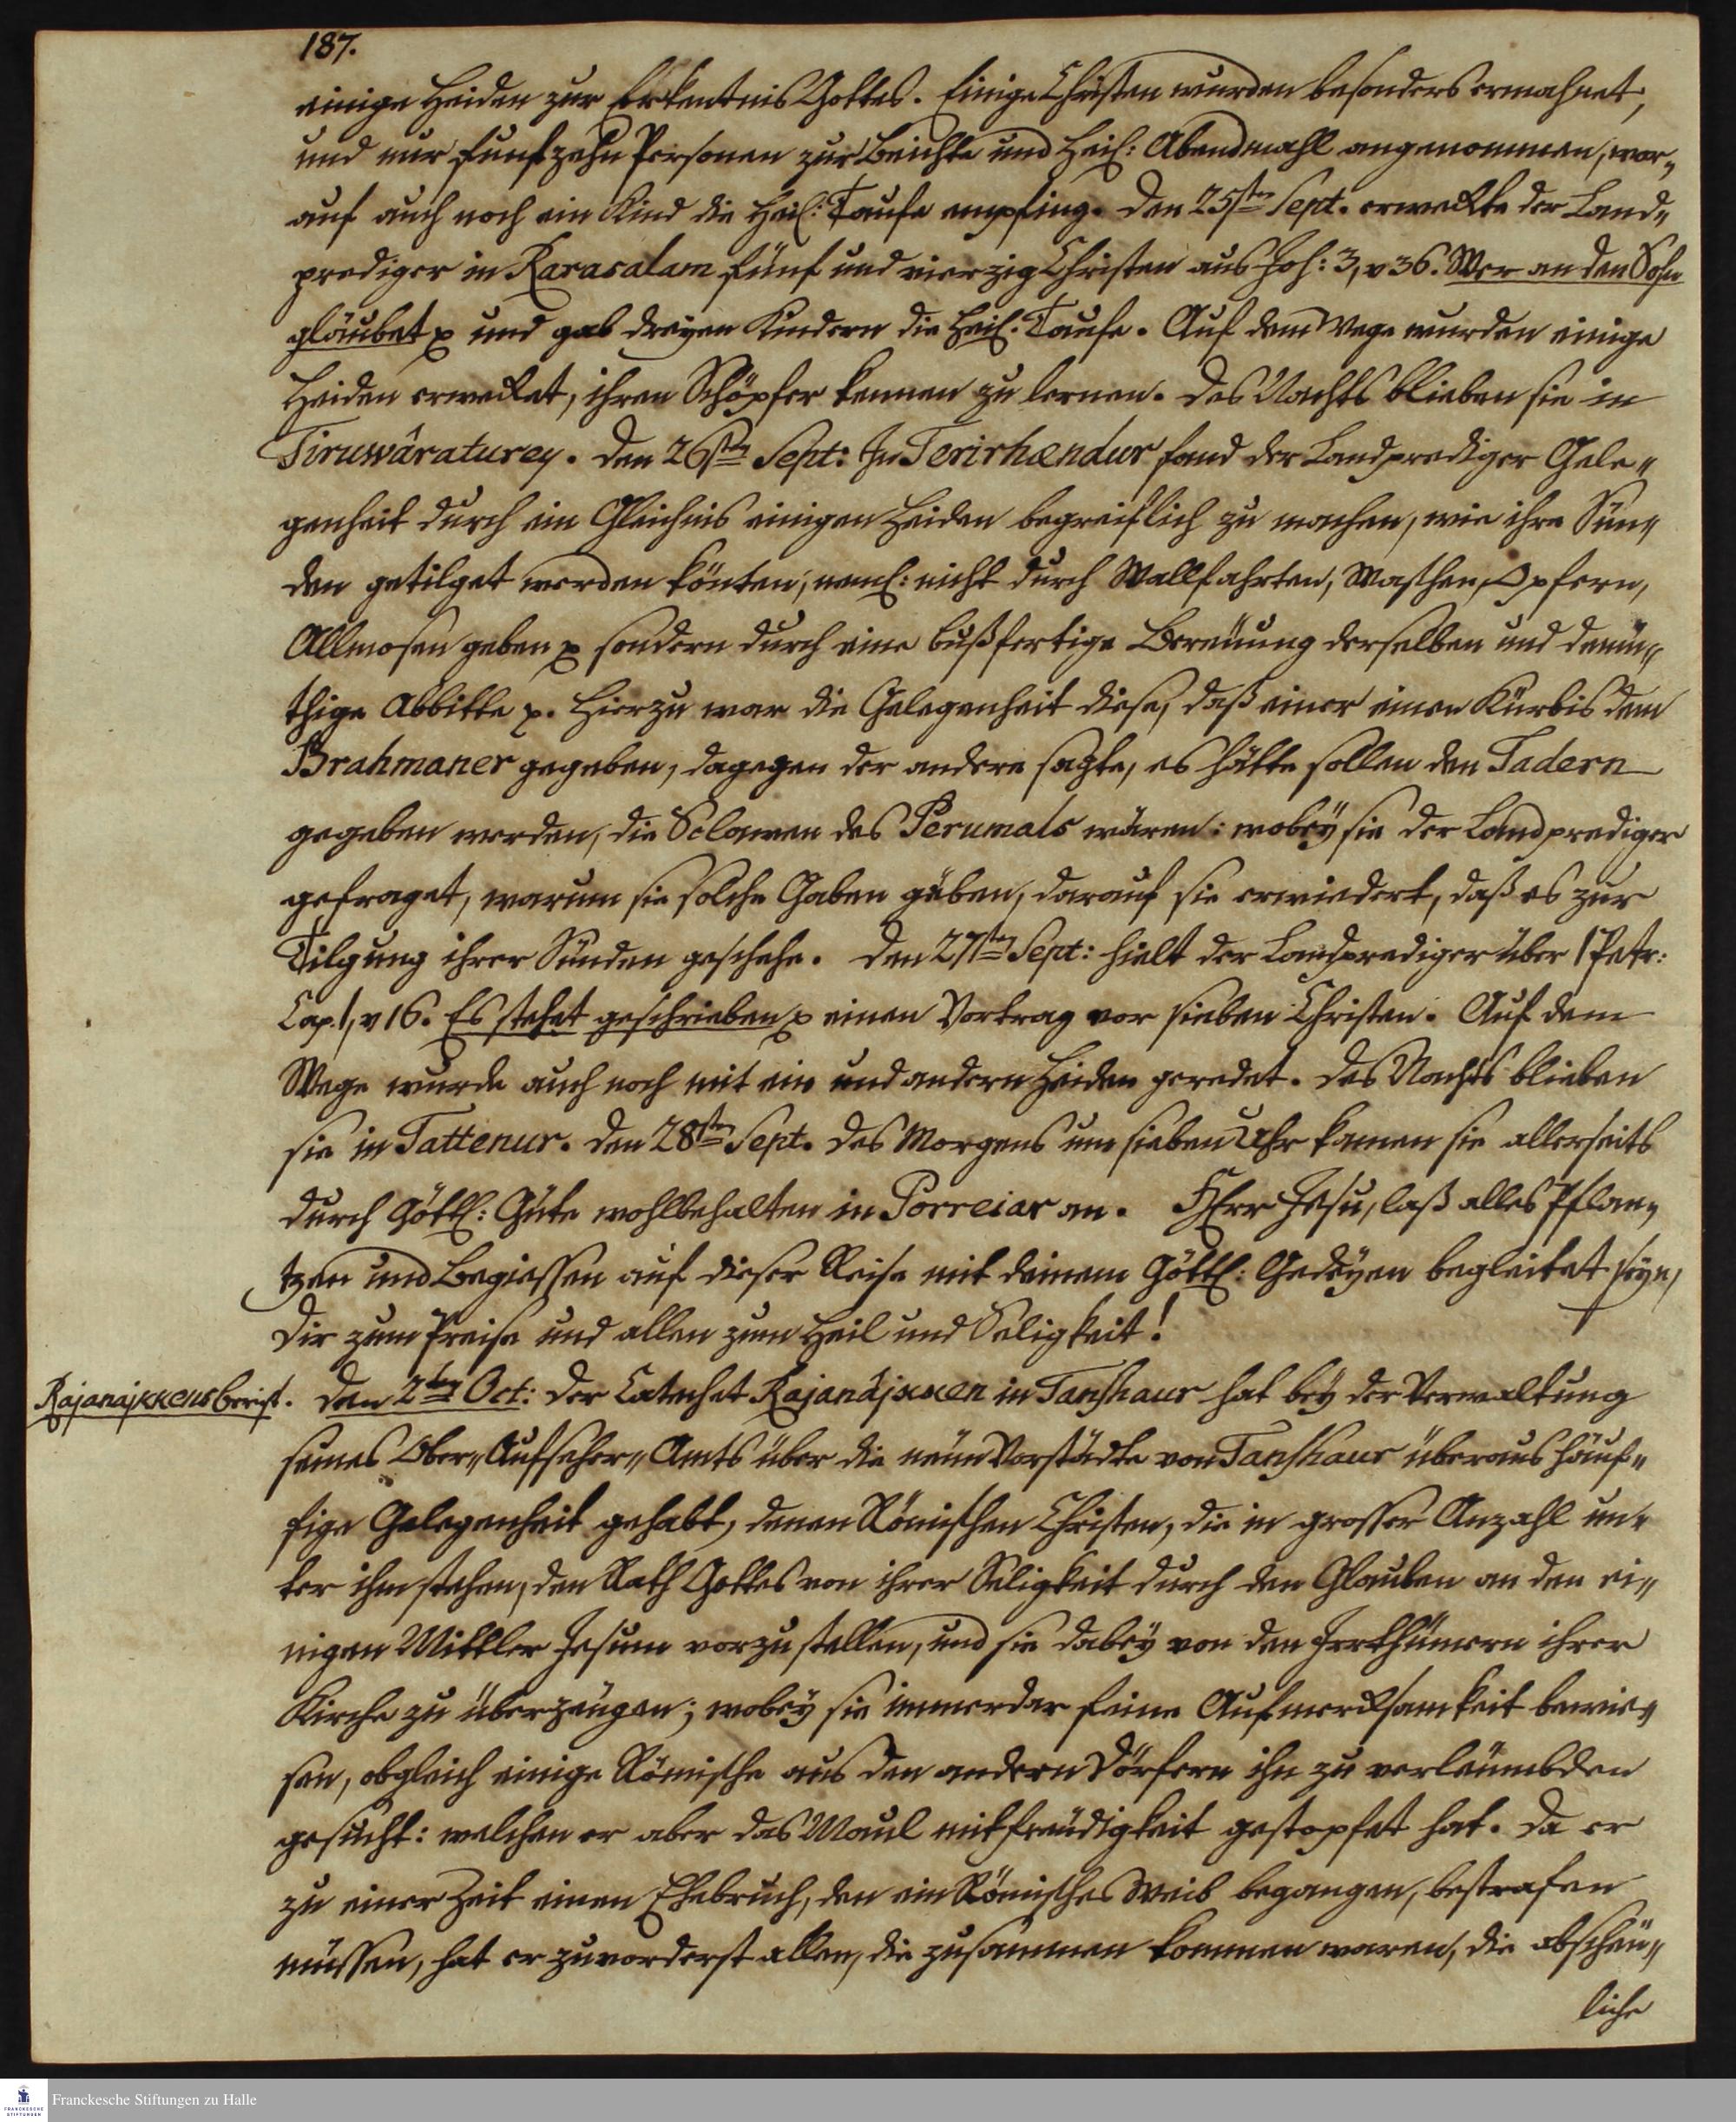 187.
einige Heiden zur Erkentnis Gottes. Einige Christen wurden besonders ermahnet,
und nur funfzehn Personen zur Beichte und Heil: Abendmahl angenommen, wor„
auf auch noch ein Kind die Heil: Taufe empfing. Den 25sten Sept. erweckte der Land„
prediger in Karasalam fünf und vierzig Christen aus Joh: 3, v 36. Wer an den Sohn
gläubet p und gab dreyen Kindern die Heil: Taufe. Auf dem Wege wurden einige
Heiden erwecket, ihren Schöpfer kennen zu lernen. Des Nachts blieben sie in
Tiruwâraturey. Den 26sten Sept: In Terirhendur fand der Landprediger Gele„
genheit durch ein Gleichnis einigen Heiden begreiflich zu machen, wie ihre Sün„
den getilget werden könten, neml: nicht durch Wallfahrten, Waschen, Opfern,
Allmosen geben p sondern durch eine bußfertige Bereüung derselben und demü„
thige Abbitte p. Hierzu war die Gelegenheit diese, daß einer einen Kürbis dem
Brahmaner gegeben, dagegen der andere sagte, es hätte sollen den Tadern
gegeben werden, die Sclaven des Perumals wären: wobey sie der Landprediger
gefraget, warum sie solche Gaben gäben, darauf sie erwiedert, daß es zur
Tilgung ihrer Sünden geschehe. Den 27sten Sept: hielt der Landprediger über 1 Petr:
Cap. 1, v 16. Es stehet geschrieben p einen Vortrag vor sieben Christen. Auf dem
Wege wurde auch noch mit ein und andern Heiden geredet. Des Nachts blieben
sie in Tattenur. Den 28sten Sept. des Morgens um sieben Uhr kamen sie allerseits
durch Göttl: Güte wohlbehalten in Porreiar an. HErr Jesu, laß alles Pflan„
tzen und Begiessen auf dieser Reise mit deinem Göttl: Gedeyen begleitet seyn,
dir zum Preise und allen zum Heil und Seligkeit!
Rajanajkkens bericht. Den 2ten Oct: Der Catechet Rajanâjkken in Tanshaur hat bey der Verwaltung
seines Ober„Aufseher„Amts über die neün Vorstädte von Tanshaur überaus häuf„
fige Gelegenheit gehabt, denen Römischen Christen, die in grosser Anzahl un„
ter ihm stehen, den Rath Gottes von ihrer Seligkeit durch den Glauben an den ei„
nigen Mittler Jesum vorzustellen, und sie dabey von den Irrthümern ihrer
Kirche zu überzeugen; wobey sie immerdar feine Aufmercksamkeit bewie„
sen, obgleich einige Römische aus den andern Dörfern ihn zu verleümbden
gesucht: welchen er aber das Maul mit freüdigkeit gestopfet hat. Da er
zu einer Zeit einen Ehebruch, den ein Römisches Weib begangen, bestrafen
müssen, hat er zuvorderst allen, die zusammen kommen waren, die abscheü„
liche
FRANCKESCHE STIFTUNGEN
Franckesche Stiftungen zu Halle